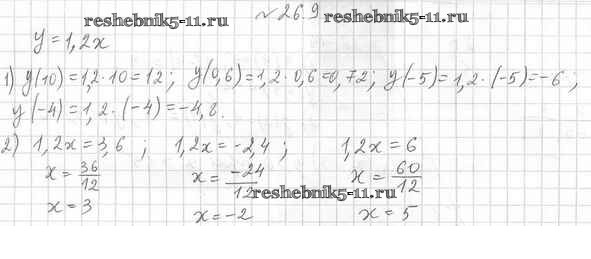 № 26.9
reshebnik5-11.ru reshebnik5-11.ru
y = 1,2x
1) y(10) = 1,2 · 10 = 12; y(0,6) = 1,2 · 0,6 = 0,72; y(-5) = 1,2 · (-5) = -6;
y(-4) = 1,2 · (-4) = -4,8.
2) 1,2x = 3,6; 1,2x = -2,4; 1,2x = 6
x = 36/12 x = -24/12 x = 60/12
reshebnik5-11.ru
x = 3 x = -2 x = 5